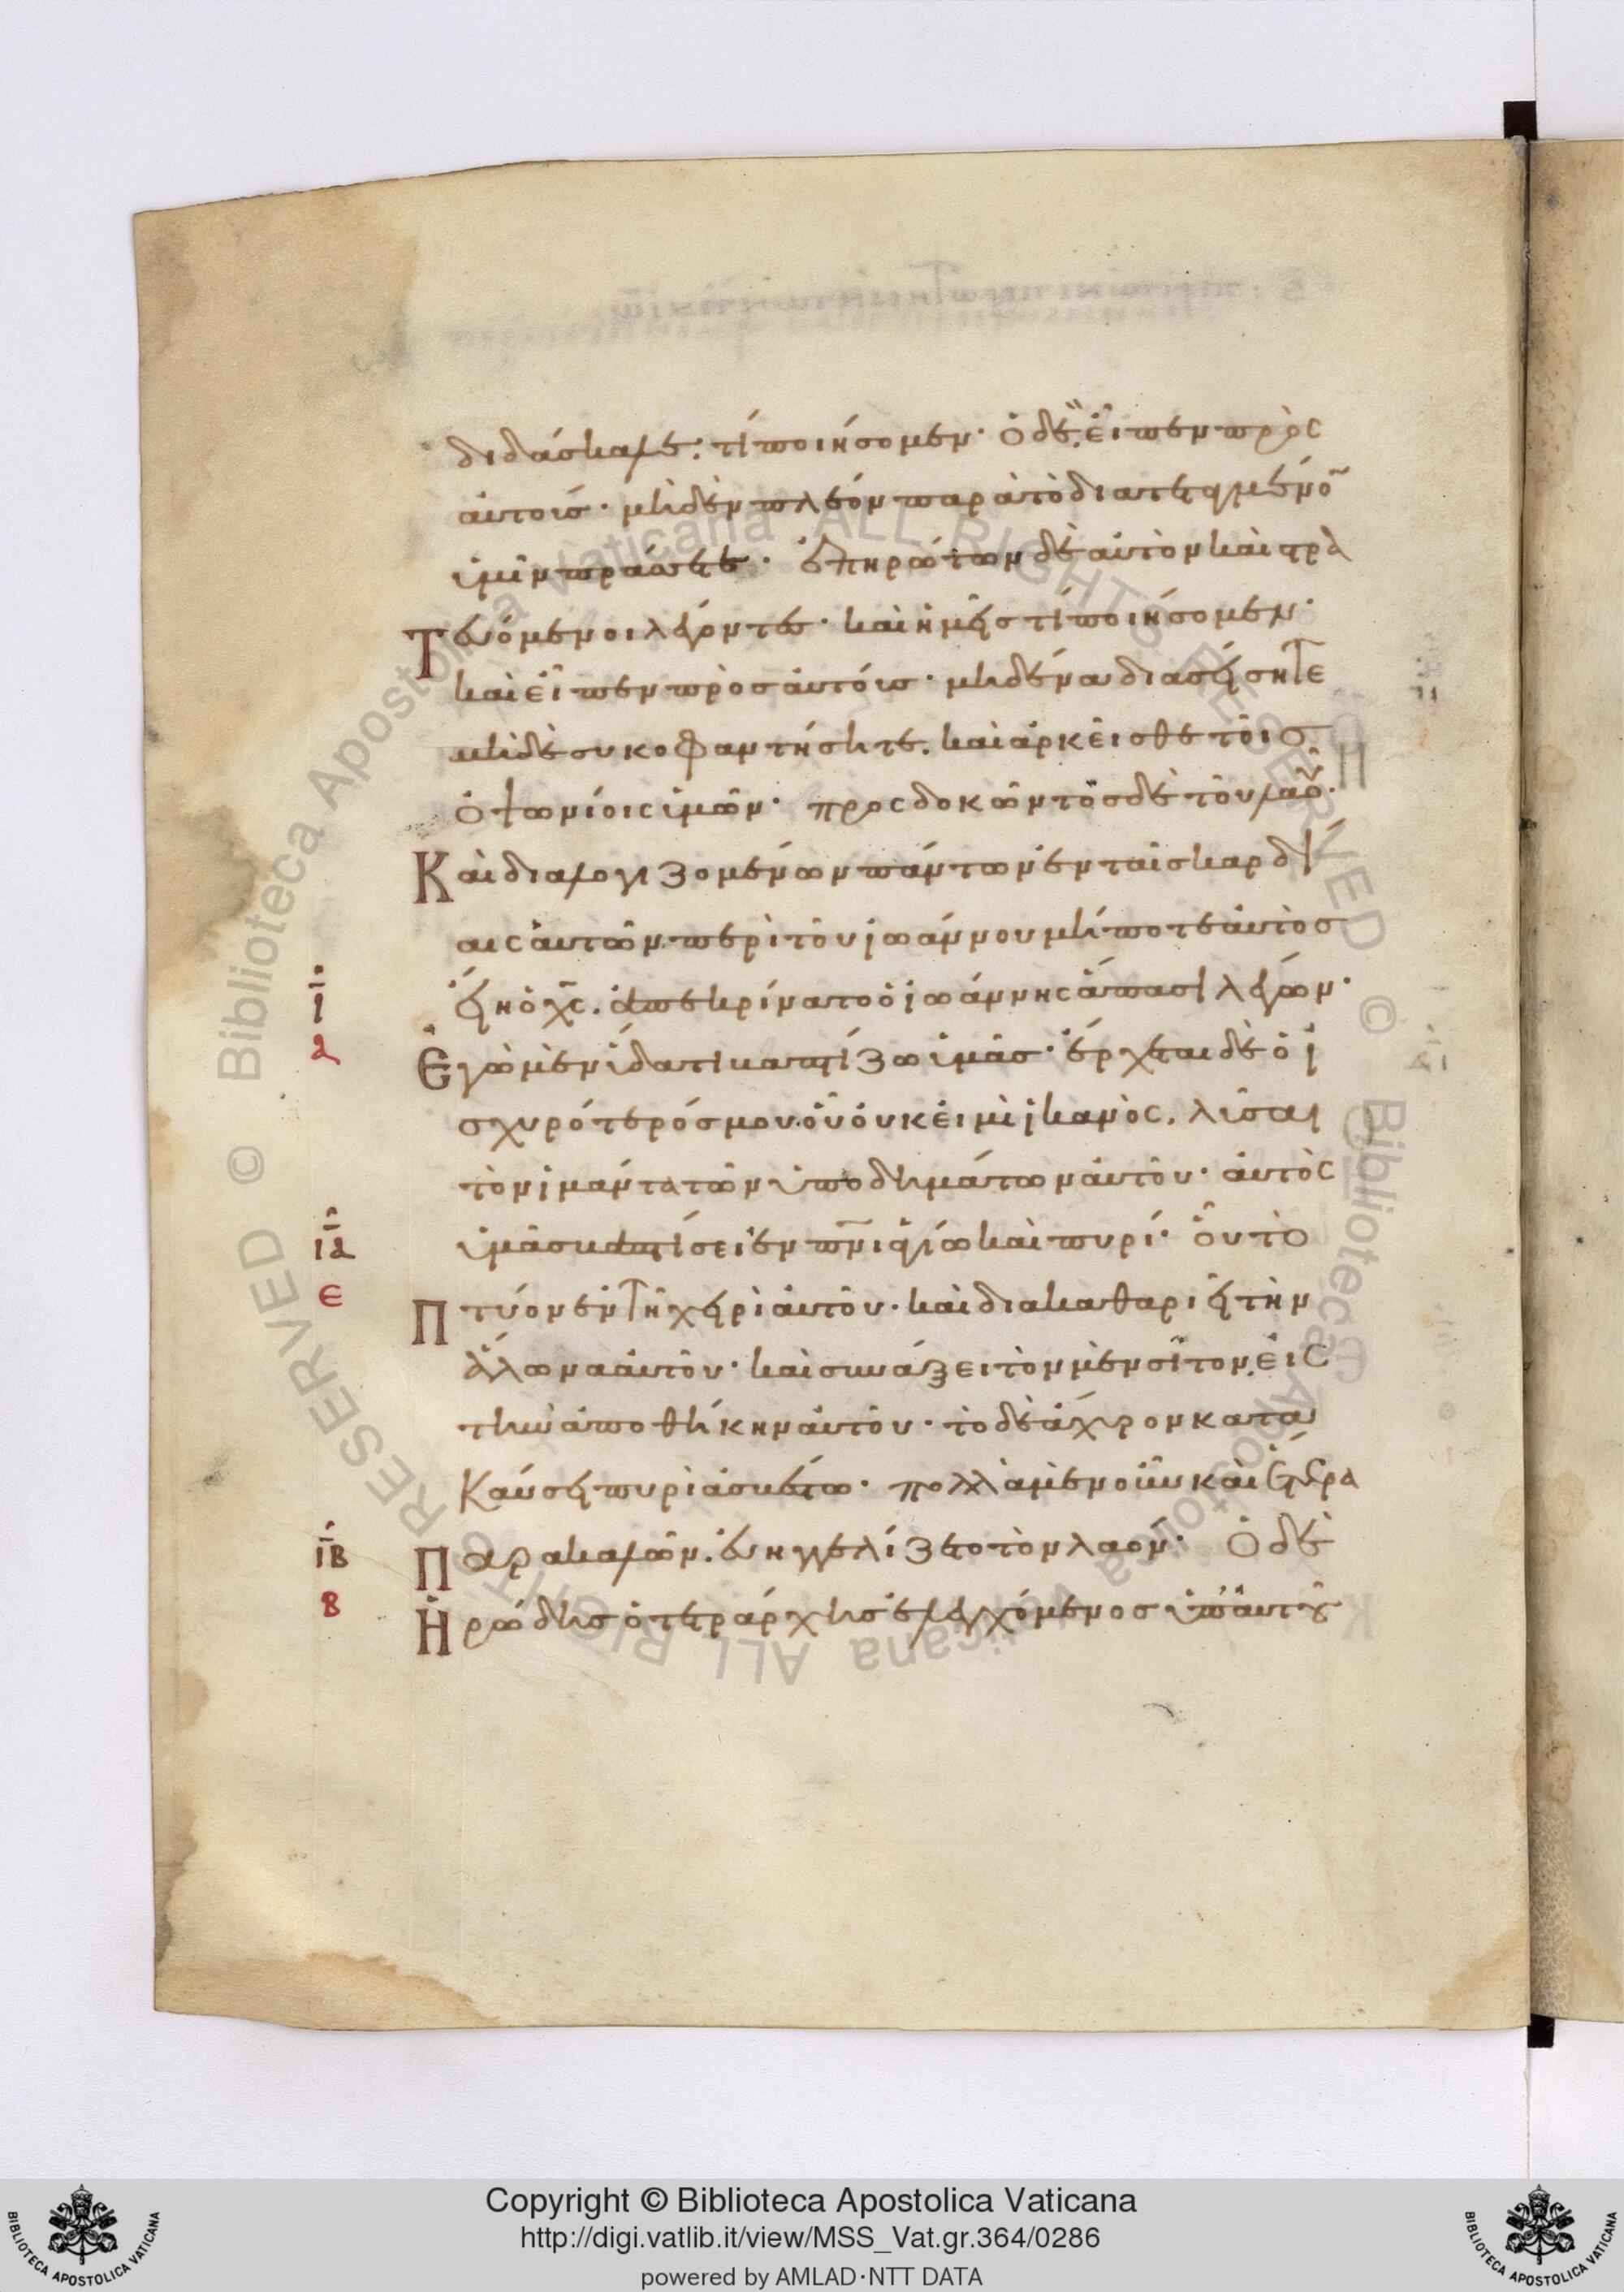 διδάσκαλε· τί ποιήσομεν· ὁ δὲ εἶπεν πρὸς
αὐτούς· μηδὲν πλέον παρὰ τὸ διατεταγμένον
ὑμῖν πράσσετε· ἐπηρώτων δὲ αὐτὸν καὶ στρα
Τευόμενοι λέγοντες· καὶ ἡμεῖς τί ποιήσομεν·
καὶ εἶπεν πρὸς αὐτούς· μηδένα διασείσητε
μηδὲ συκοφαντήσητε. καὶ ἀρκεῖσθε τοῖς
ὀψωνίοις ὑμῶν· προσδοκῶντος δὲ τοῦ λαοῦ·
Καὶ διαλογιζομένων πάντων ἐν ταῖς καρδί
αις αὐτῶν περὶ τοῦ ἰωάννου μήποτε αὐτὸς
εἴη ὁ χς. ἀπεκρίνατο ὁ ἰωάννης ἅπασι λέγων·
Ἐγὼ μὲν ὕδατι βαπτίζω ὑμᾶς· ἔρχεται δὲ ὁ ἰ
σχυρότερός μου· οὗ οὐκ εἰμὶ ἱκανὸς. λῦσαι
τὸν ἱμάντα τῶν ὑποδημάτων αὐτοῦ· αὐτὸς
ὑμᾶς βαπτίσει ἐν πνι ἁγίω καὶ πυρί· οὗ τὸ
Πτύον ἐν τῆ χειρὶ αὐτοῦ· καὶ διακαθαριεῖ τὴν
ἅλωνα αὐτοῦ· καὶ συνάξει τὸν μὲν σῖτον εἰς
τὴν ἀποθήκην αὐτοῦ· τὸ δὲ ἄχυρον κατα
Καύσει πυρὶ ἀσβέστω· πολλὰ μὲν οὖν καὶ ἕτερα
Παρακαλῶν. εὐηγγελίζετο τὸν λαόν· Ὁ δὲ
Ἡρώδης ὁ τετράρχης ἐλεγχόμενος ὑπ' αὐτοῦ
ι
α
ια
ε
ιβ
β
Copyright © Biblioteca Apostolica Vaticana
http://digi.vatlib.it/view/MSS_Vat.gr.364/0286
powered by AMLAD·NTT DATA